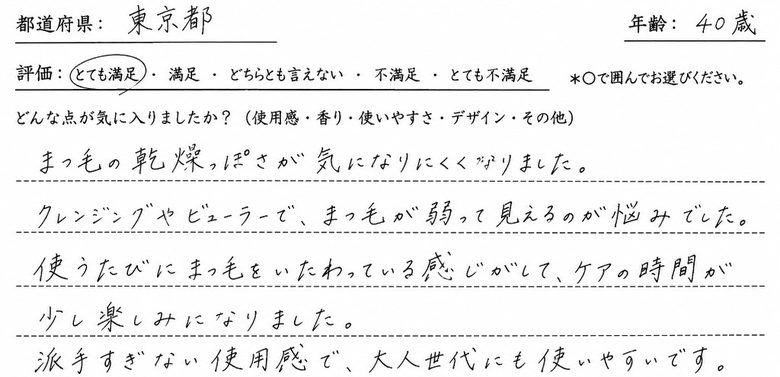 都道府県： 東京都 年齢： 40歳
評価： とても満足 ・ 満足 ・ どちらとも言えない ・ 不満足 ・ とても不満足 ＊〇で囲んでお選びください。
どんな点が気に入りましたか？（使用感・香り・使いやすさ・デザイン・その他）
まつ毛の乾燥っぽさが気になりにくくなりました。
クレンジングやビューラーで、まつ毛が弱って見えるのが悩みでした。
使うたびにまつ毛をいたわっている感じがして、ケアの時間が
少し楽しみになりました。
派手すぎない使用感で、大人世代にも使いやすいです。